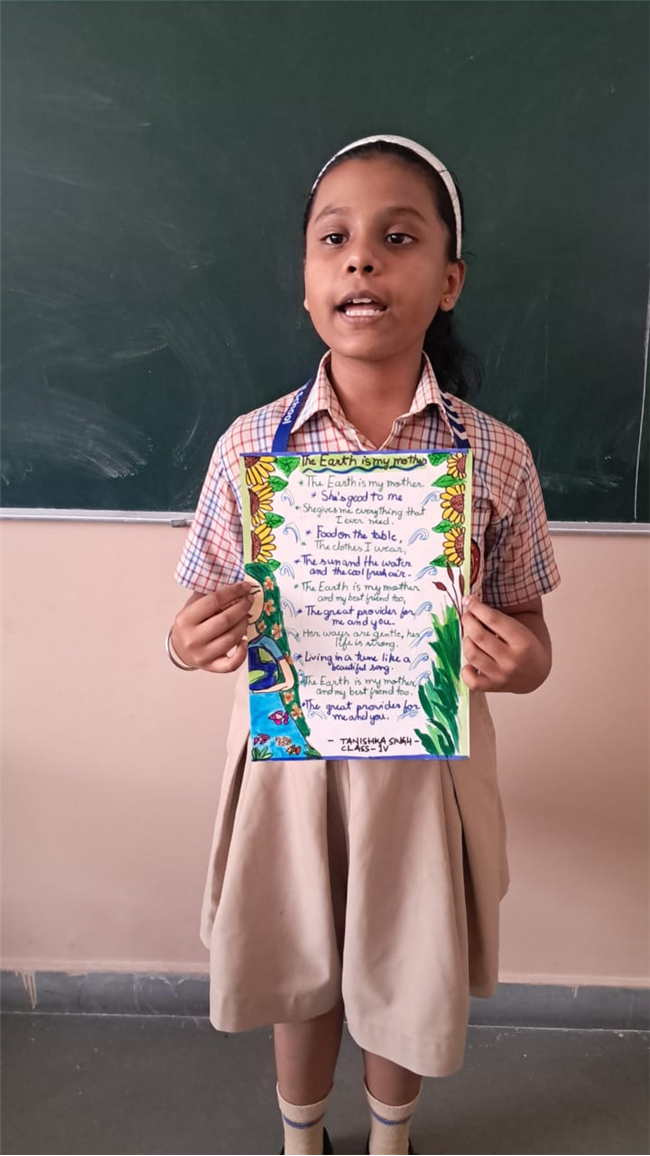 School
The Earth is my mother
* The Earth is my mother.
* She's good to me
* She gives me everything that
I ever need.
* Food on the table,
* The clothes I wear,
* The sun and the water
and the cool fresh air.
* The Earth is my mother
and my best friend too,
* The great provider for
me and you.
* Her ways are gentle, her
life is strong.
* Living in a tune like a
beautiful song.
The Earth is my mother
and my best friend too.
* The great provides for
me and you.
- TANISHKA SINGH -
CLASS - IV